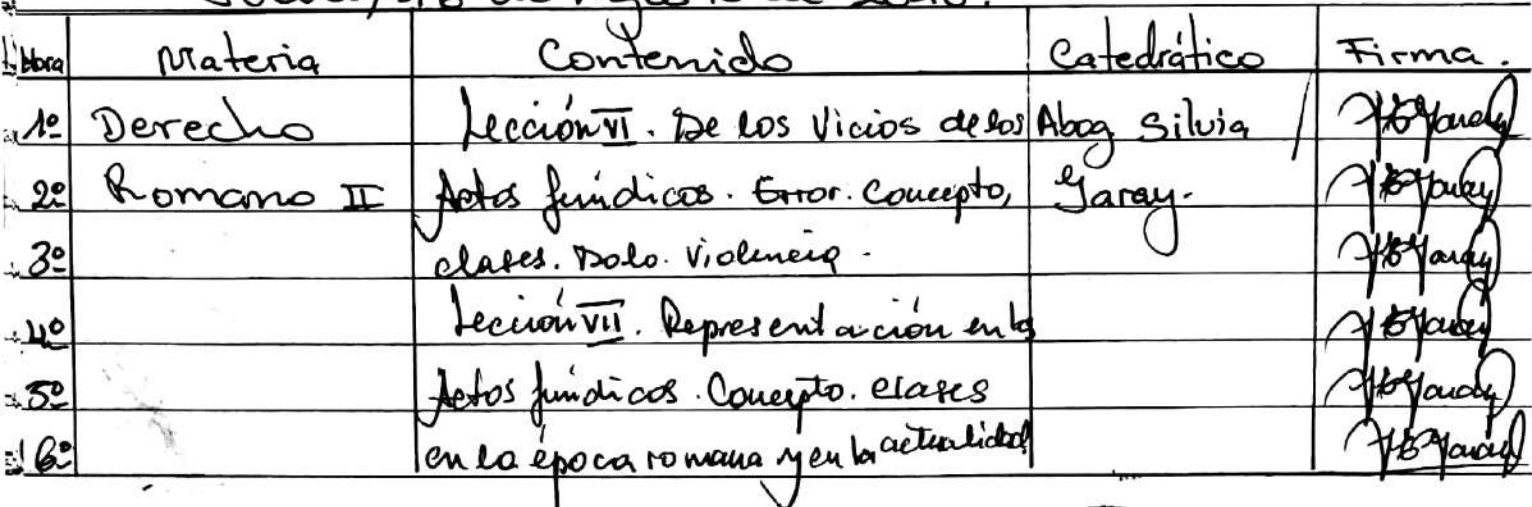 de Agosto de
Hora Materia Contenido Catedrático Firma.
1º Derecho Lección VI. De los Vicios de los Abog Silvia
2º Romano II Actos Jurídicos. Error. Concepto, Garay.
3º clases. Dolo. Violencia.
4º Lección VII. Representación en los
5º Actos Jurídicos. Concepto. clases
6º en la época romana y en la actualidad